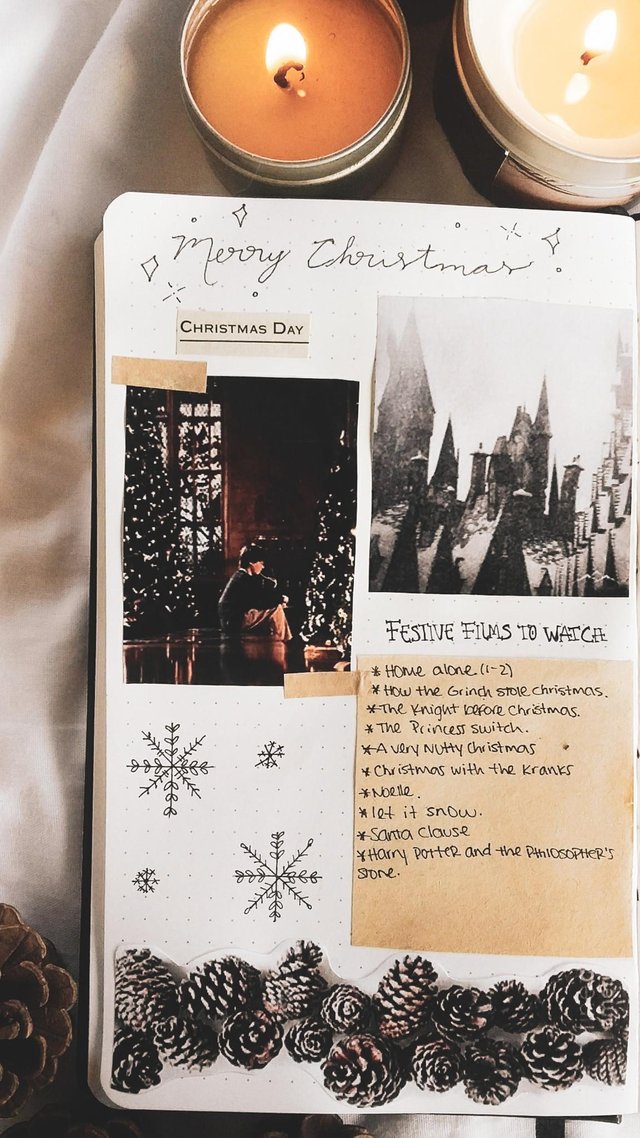 Merry Christmas
CHRISTMAS DAY
FESTIVE FILMS TO WATCH
* Home alone (1-2)
* How the Grinch stole christmas.
* The Knight before christmas.
* The Princess switch.
* A very Nutty christmas
* Christmas with the Kranks
* Noelle.
* let it snow.
* Santa Clause
* Harry Potter and the PHILOSOPHER'S
stone.